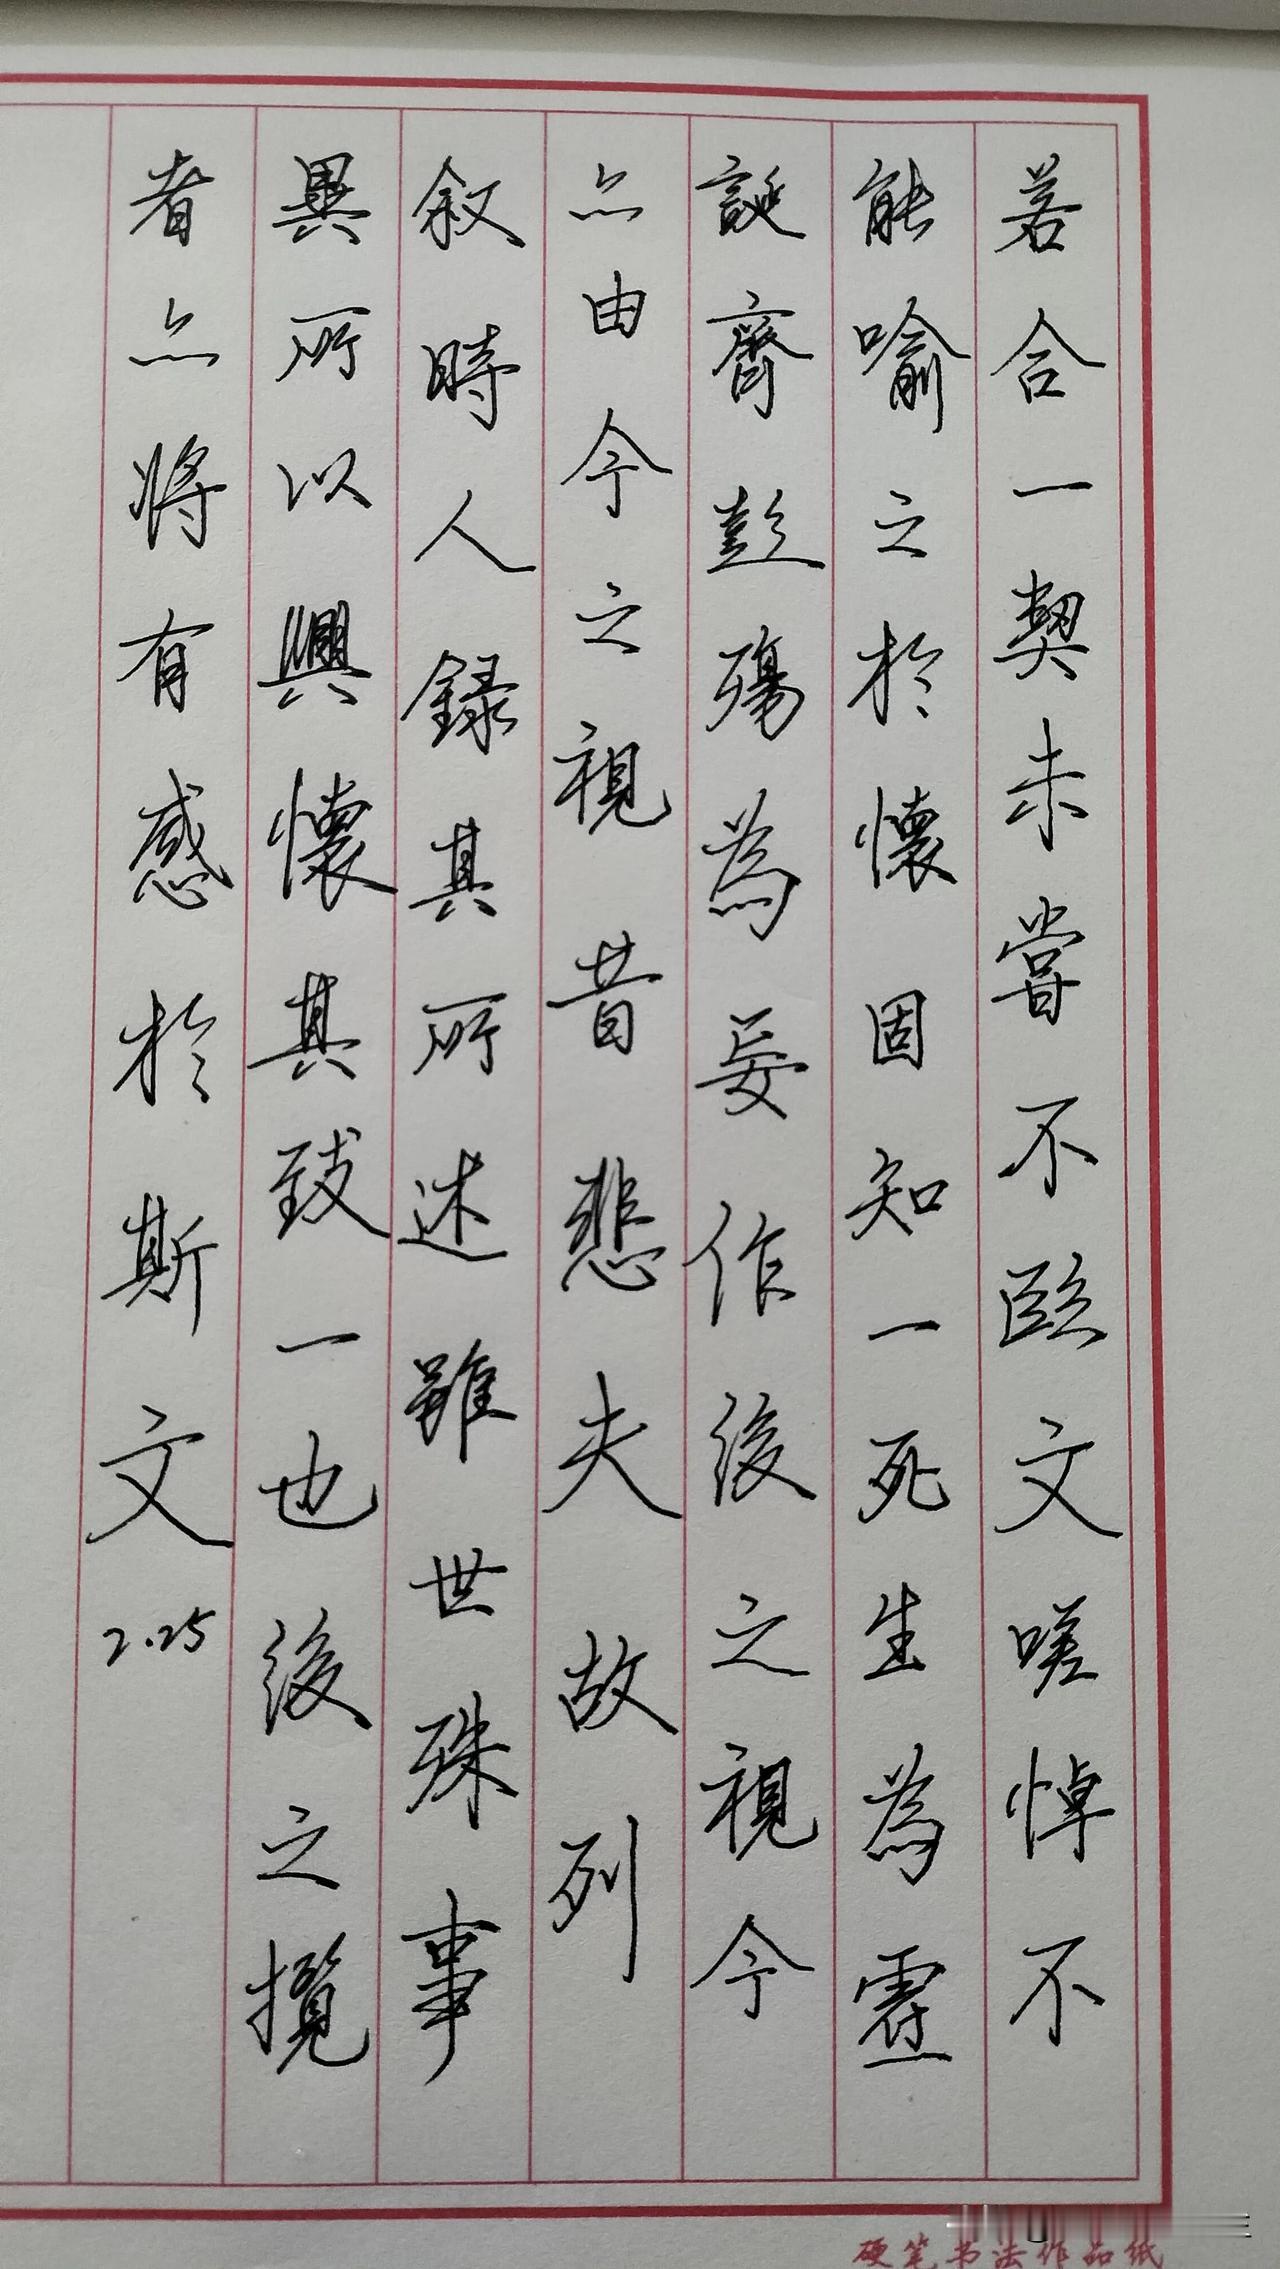 若合一契未嘗不臨文嗟悼不
能喻之於懷固知一死生為虛
誕齊彭殤為妄作後之視今
亦由今之視昔悲夫故列
叙時人錄其所述雖世殊事
異所以興懷其致一也後之攬
者亦將有感於斯文
2.25
硬笔书法作品纸